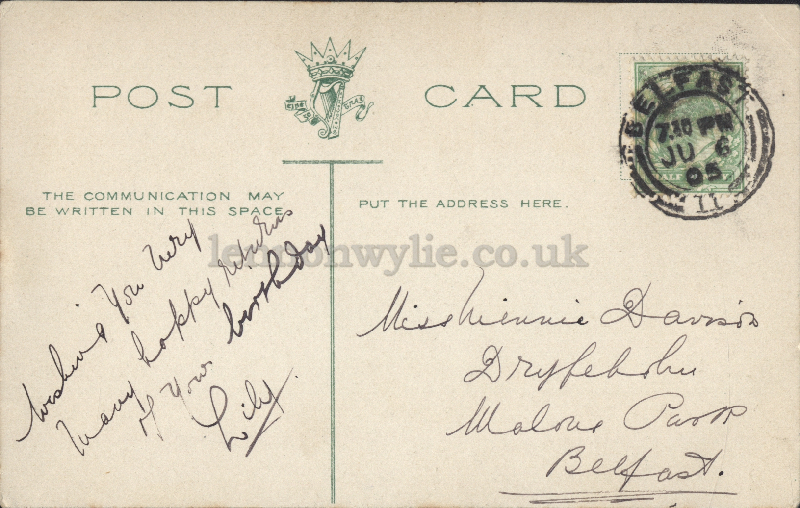 POST CARD
THE COMMUNICATION MAY
BE WRITTEN IN THIS SPACE.
PUT THE ADDRESS HERE.
BELFAST
7.30 PM
JU 6
05
11
lennonwylie.co.uk
Wishing You Very
Many happy returns
of your birthday
Lily.
Miss Minnie Davison
Malone Park
Belfast.